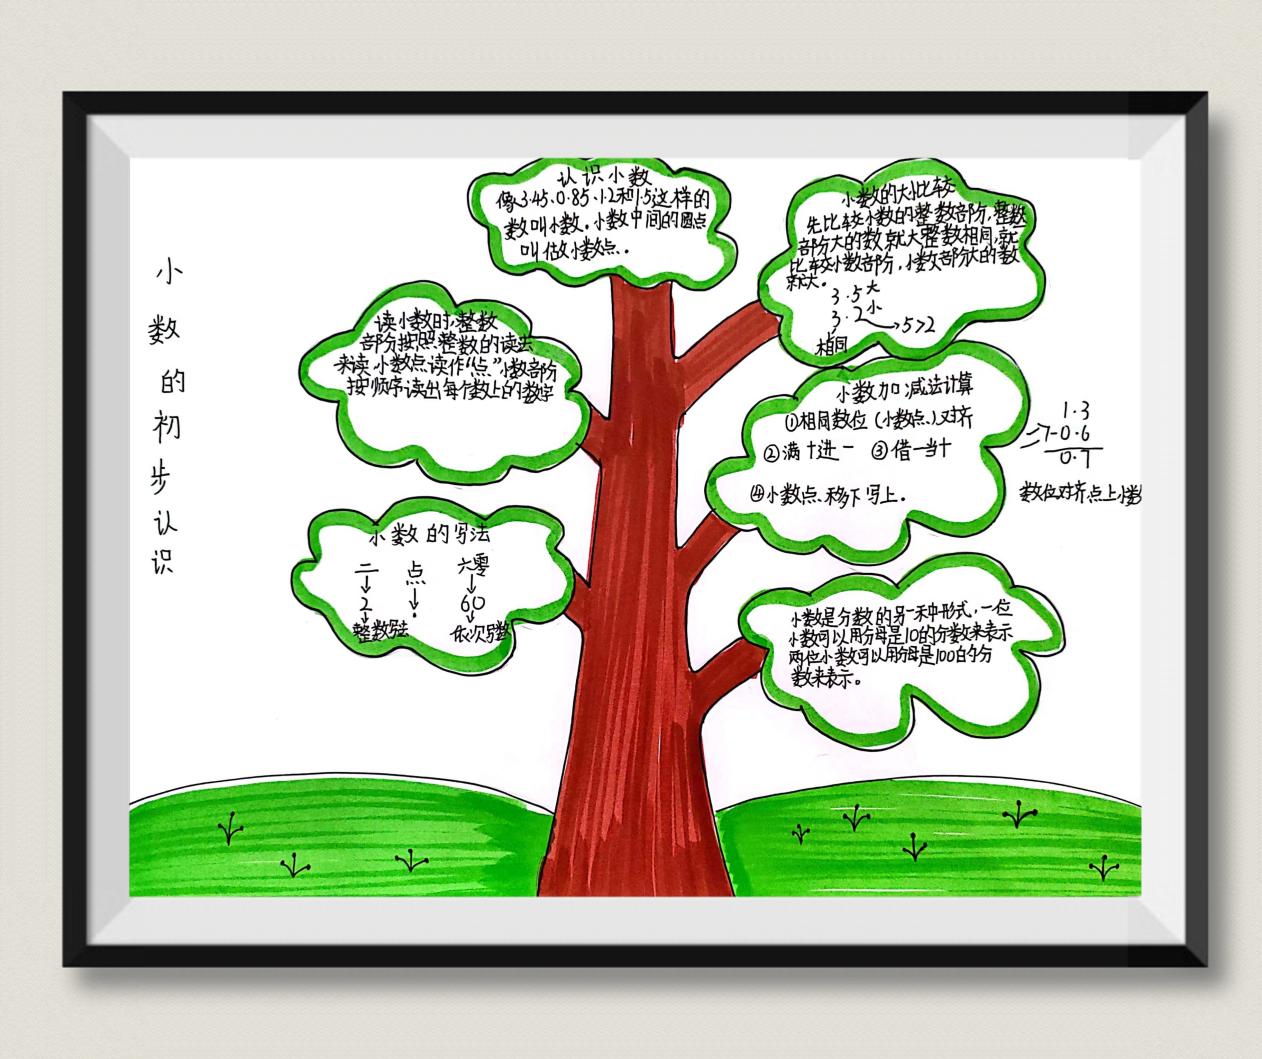 小数的初步认识
认识小数
像3.45.0.85.1.2和1.5这样的
数叫小数。小数中间的圆点
叫做小数点.
读小数时,整数
部分按照整数的读法
来读.小数点读作“点”小数部分
按顺序读出每个数上的数字
小数的写法
二 点 六零
2 . 60
整数写法 依次写数
小数的大小比较
先比较小数的整数部分,整数
部分大的数就大整数相同,就
比较小数部分,小数部分大的数
就大。
3.5大
3.2小
5>2
相同
小数加减法计算
①相同数位(小数点)对齐
②满十进一 ③借一当十
④小数点移下写上.
1.3
-0.6
0.7
数位对齐点上小数
小数是分数的另一种形式,一位
小数可以用分母是10的分数来表示
两位小数可以用分母是100的分
数来表示。